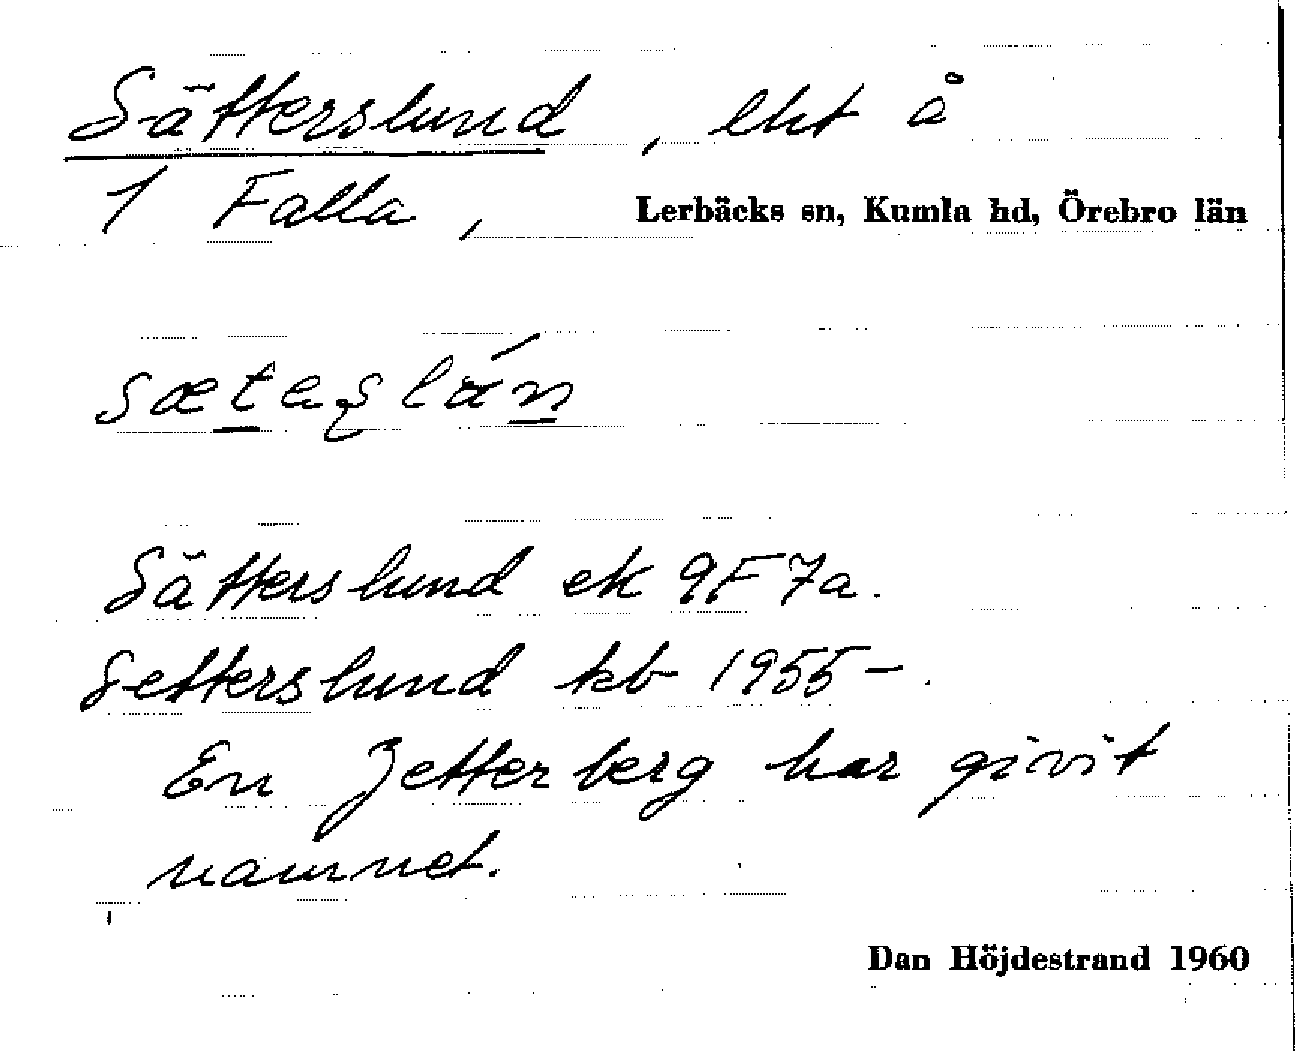 Sätterslund, lht å
1 Falla, Lerbäcks sn, Kumla hd, Örebro län
Sätterslund ek 9F7a.
Setterslund kb 1955-.
En Zetterberg har givit
namnet.
Dan Höjdestrand 1960